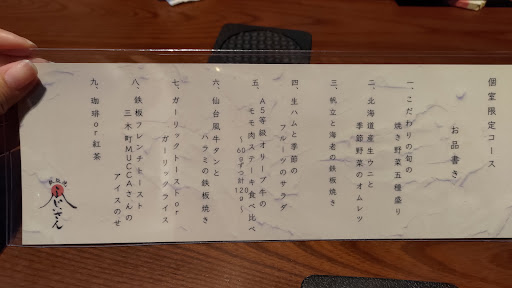 個室限定コース
お品書き
一、こだわりの旬の
焼き野菜五種盛り
二、北海道産生ウニと
季節野菜のオムレツ
三、帆立と海老の鉄板焼き
四、生ハムと季節の
フルーツのサラダ
五、A5等級オリーブ牛の
モモ肉ステーキ食べ比べ
~60gずつ計120g~
六、仙台風牛タンと
ハラミの鉄板焼き
七、ガーリックトーストor
ガーリックライス
八、鉄板フレンチトースト
三木町MUCCAさんの
アイスのせ
九、珈琲or紅茶